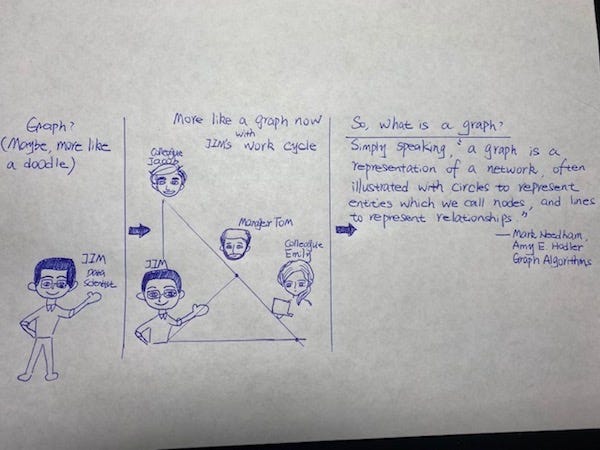 Graph?
(Maybe, more like
a doodle.)
JIM
Data
Scientist
More like a graph now
with
JIM's work cycle
Colleague
Jacob
Manager Tom
Colleague
Emily
JIM
So, what is a graph?
Simply speaking, " a graph is a
representation of a network, often
illustrated with circles to represent
entities which we call nodes, and lines
to represent relationships."
— Mark Needham,
Amy E. Hodler
Graph Algorithms